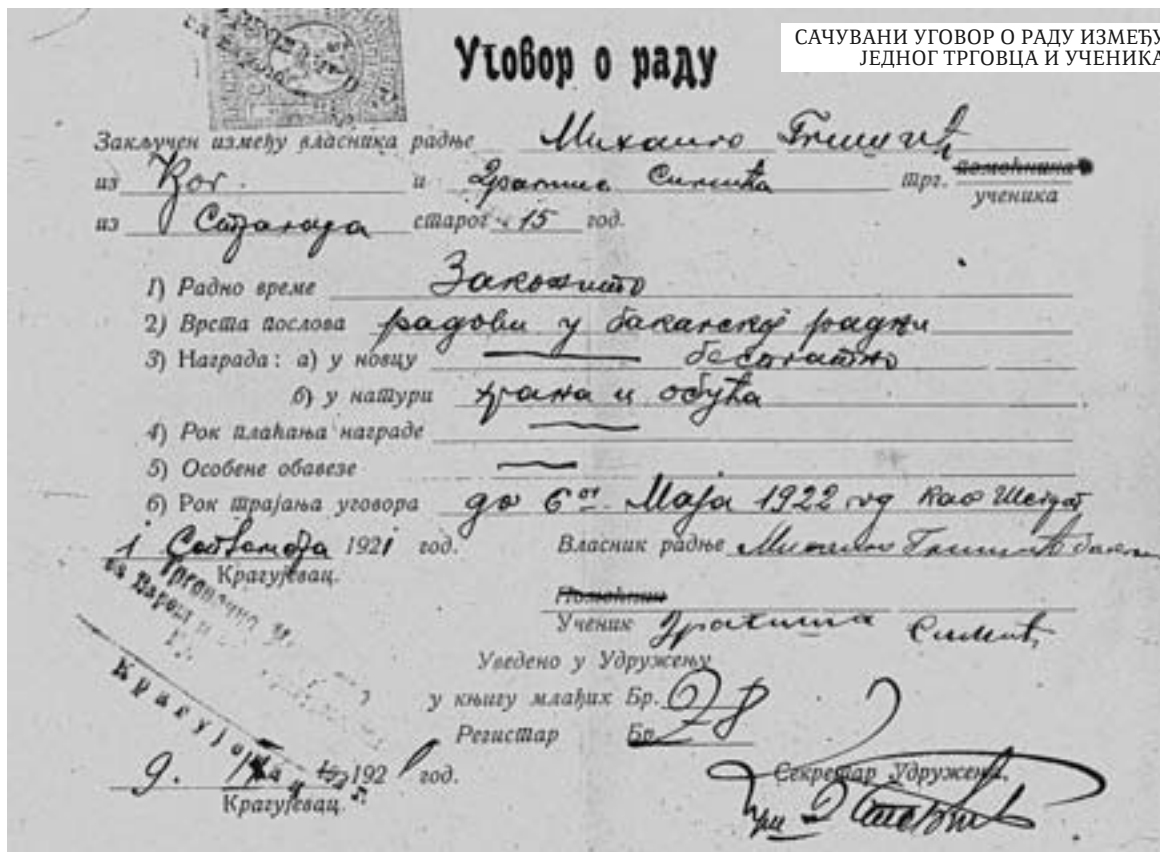 САЧУВАНИ УГОВОР О РАДУ ИЗМЕЂУ
ЈЕДНОГ ТРГОВЦА И УЧЕНИКА
Уговор о раду
Закључен између власника радње Михаило
из Ког. и Драгише Симића трг. помоћника
ученика
из старог 15 год.
1) Радно време Законито
2) Врста послова радови у бакалској радњи
3) Награда: а) у новцу бесплатно
б) у натури храна и обућа
4) Рок плаћања награде
5) Особене обавезе
6) Рок трајања уговора до 6ог Маја 1922 год као
1 1921 год. Власник радње Михаило
Крагујевац.
Помоћник
Ученик Драгиша Симић
Уведено у Удружењу
у књигу млађих Бр. 28
Регистар Бр.
9. 1921 год. Секретар Удружења,
Крагујевац.
Крагујевац